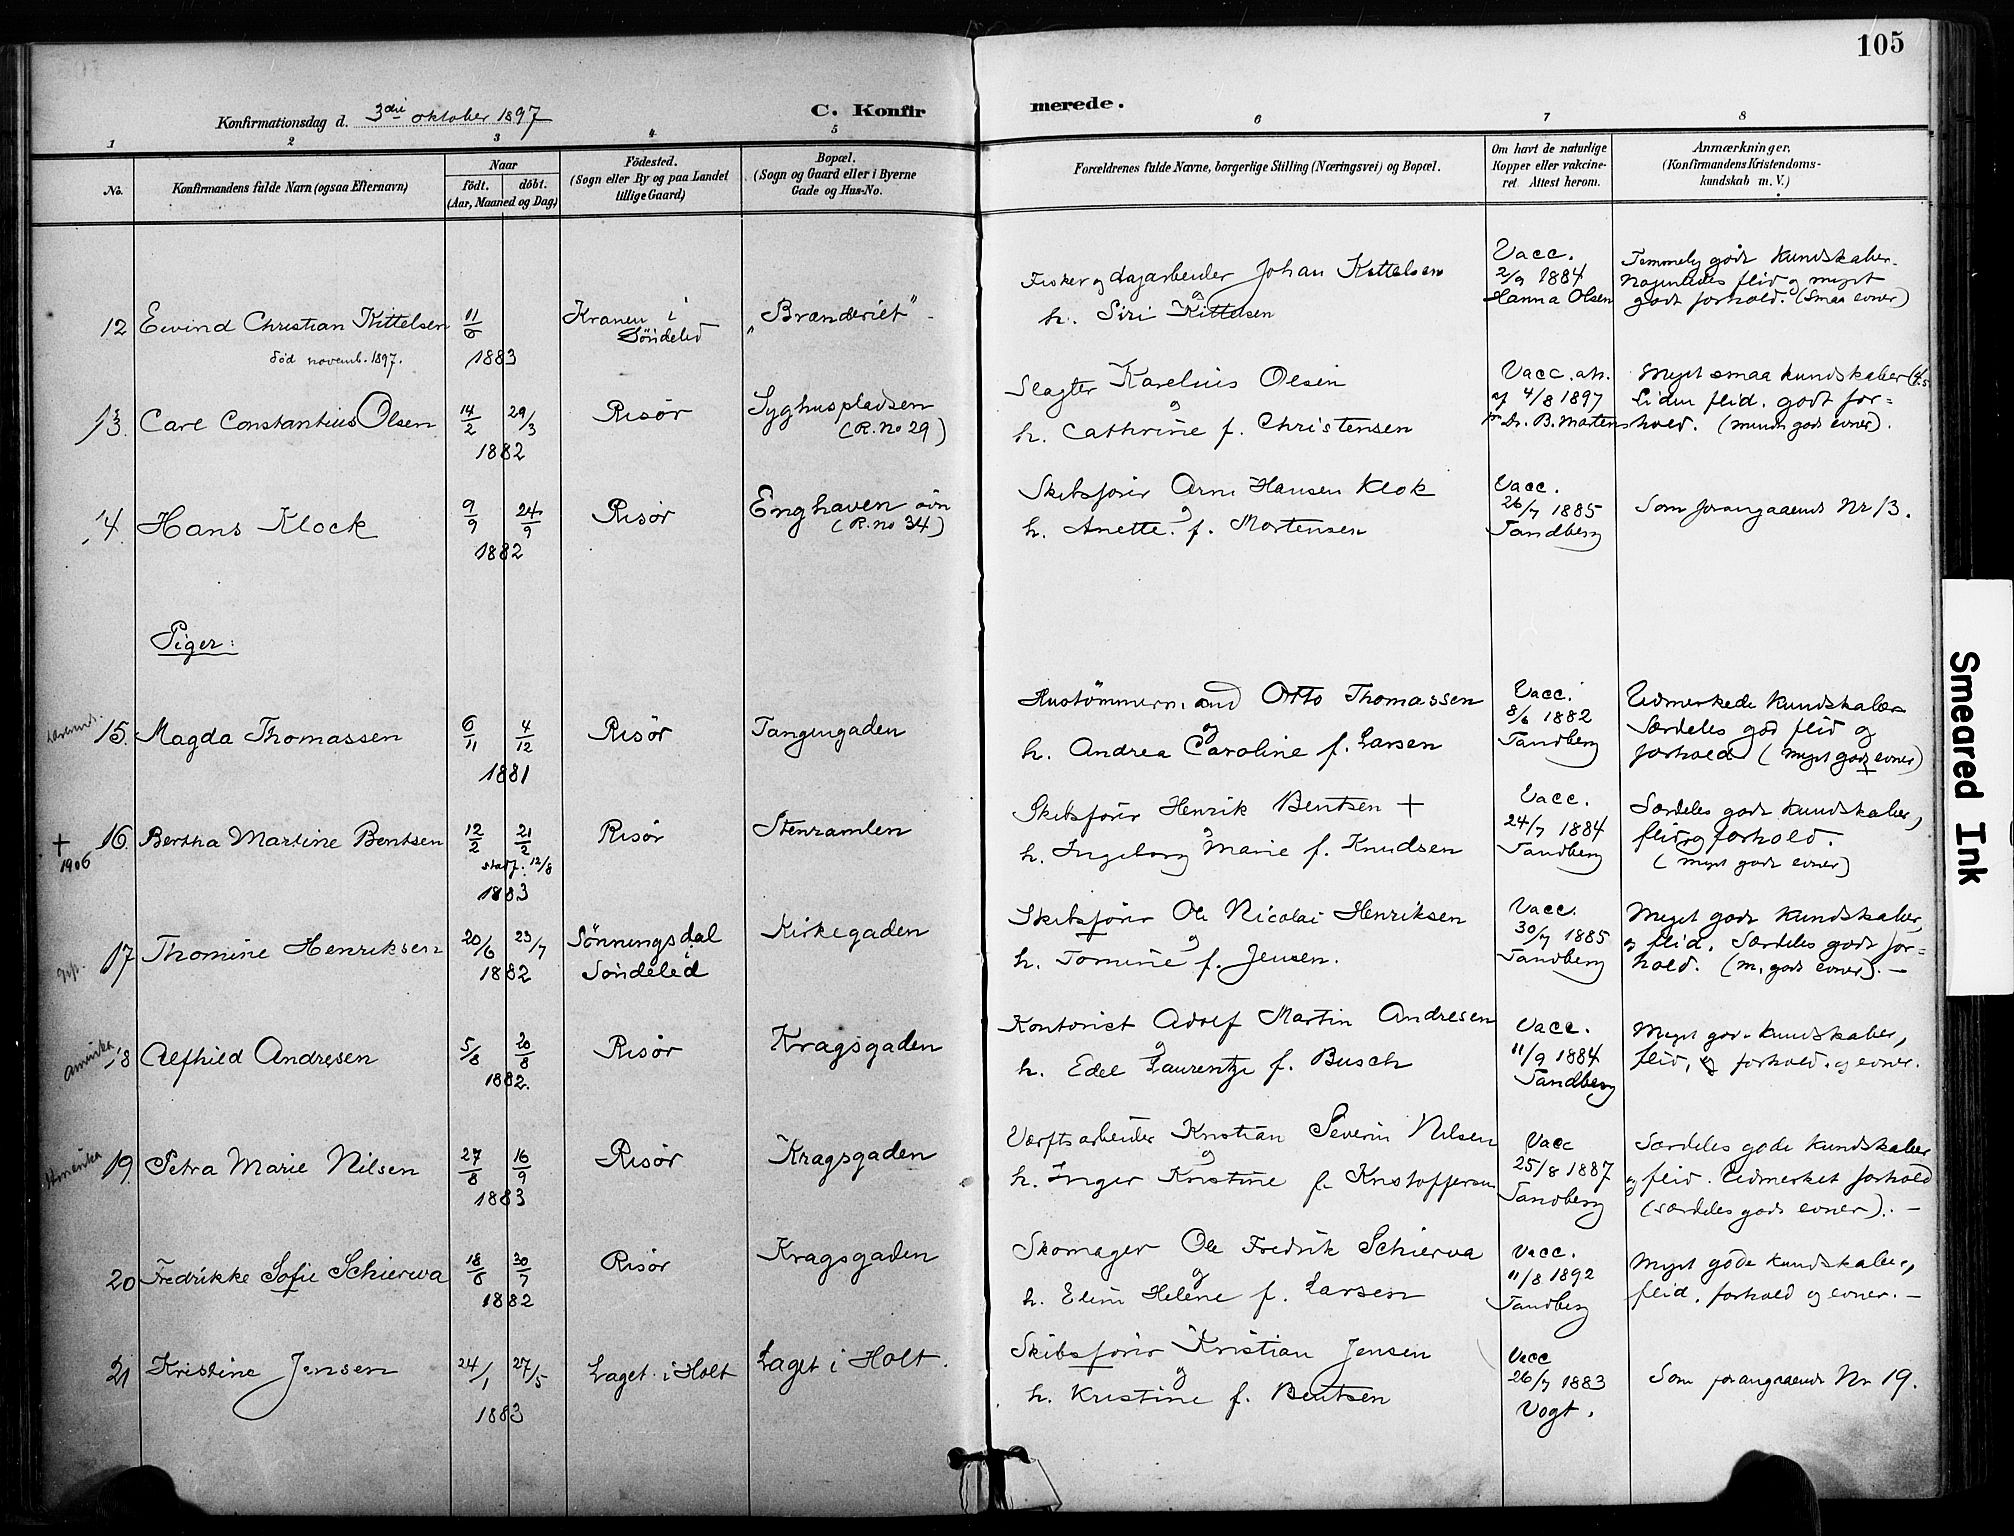 105
Konfirmationsdag d. 3die oktober 1897
C. Konfirmerede.
1 2 3 4 5 6 7 8
No.
Konfirmandens fulde Navn (ogsaa Efternavn)
Naar
födt. döbt.
(Aar, Maaned og Dag)
Födested.
(Sogn eller By og paa Landet
tillige Gaard)
Bopæl.
(Sogn og Gaard eller i Byerne
Gade og Hus-No.
Forældrenes fulde Navne, borgerlige Stilling (Næringsvei) og Bopæl.
Om havt de naturlige
Kopper eller vakcine-
ret. Attest herom.
Anmærkninger.
(Konfirmandens Kristendoms-
kundskab m. V.)
12 Eivind Christian Kittelsen 11/6 1883
død novemb. 1897.
Kranen i
Söndeled
"Brænderiet"
Fisker og dagarbeider Johan Kittelsen
og
h. Siri Kittelsen
Vacc.
2/9 1884
Hanna Olsen
Temmelig gode kundskaber.
Nogenledes flid og meget
godt forhold. (Smaa evner)
13. Carl Constantius Olsen 14/2 29/3 1882
Risör
Syghuspladsen
(R. no 29)
Slagter Karelius Olsen
og
h. Cathrine f. Christensen
Vacc. att.
af 4/8 1897
fr Dr. B. Mortens
Meget smaa kundskaber
Liden flid. godt for=
hold. (mindre gode evner).
14. Hans Klock 9/9 24/9 1882
Risör
Enghaven
(R. no 34)
Skibsförer Arne Hansen Klok
og
h. Anette f. Mortensen
Vacc.
26/7 1885
Tandberg
Som foregaaende Nr 13.
Piger:
15. Magda Thomassen 6/11 4/12 1881
Risör
Tangengaden
Hustömmermand Otto Thomassen
og
h. Andrea Caroline f. Larsen
Vacc.
8/6 1882
Tandberg
Udmerkede kundskaber
Særdeles god flid og
forhold (meget gode evner)
+
1906
16. Bertha Martine Bentsen 12/2 21/2
stadf. 12/8
1883
Risör
Stenramlen
Skibsförer Henrik Bentsen +
og
h. Ingeborg Marie f. Knudsen
Vacc.
24/7 1884
Tandberg
Særdeles gode kundskaber,
flid og forhold.
(meget gode evner)
17 Thomine Henriksen 20/6 23/7 1882
Sönningsdal
i
Söndeled
Kirkegaden
Skibsförer Ole Nicolai Henriksen
og
h. Tomine f. Jensen.
Vacc.
30/7 1885
Tandberg
Meget gode kundskaber
og flid. Særdeles godt for=
hold. (m. gode evner). –
Amerika
18 Alfhild Andresen 5/8 20/8 1882.
Risör
Kragsgaden
Kontorist Adolf Martin Andresen
og
h. Edel Laurentze f. Busch
Vacc.
11/9 1884
Tandberg
Meget gode kundskaber,
flid, forhold og evner.
Amerika
19. Petra Marie Nilsen 27/8 16/9 1883
Risör
Kragsgaden
Værftsarbeider Kristian Severin Nilsen
og
h. Inger Kristine f. Kristoffersen
Vacc
25/8 1887
Tandberg
Særdeles gode kundskaber
og flid. Udmerket forhold
(særdeles gode evner). –
20 Fredrikke Sofie Schierwa 18/6 30/7 1882
Risör
Kragsgaden
Skomager Ole Fredrik Schierwa
og
h. Eline Helene f. Larsen
Vacc.
11/8 1892
Tandberg
Meget gode kundskaber,
flid, forhold og evner. –
21 Kristine Jensen 24/1 27/5 1883
Laget i Holt
Laget i Holt.
Skibsförer Kristian Jensen
og
h. Kristine f. Bentsen
Vacc
26/7 1883
Vogt.
Som foregaaende Nr 19.
Smeared Ink